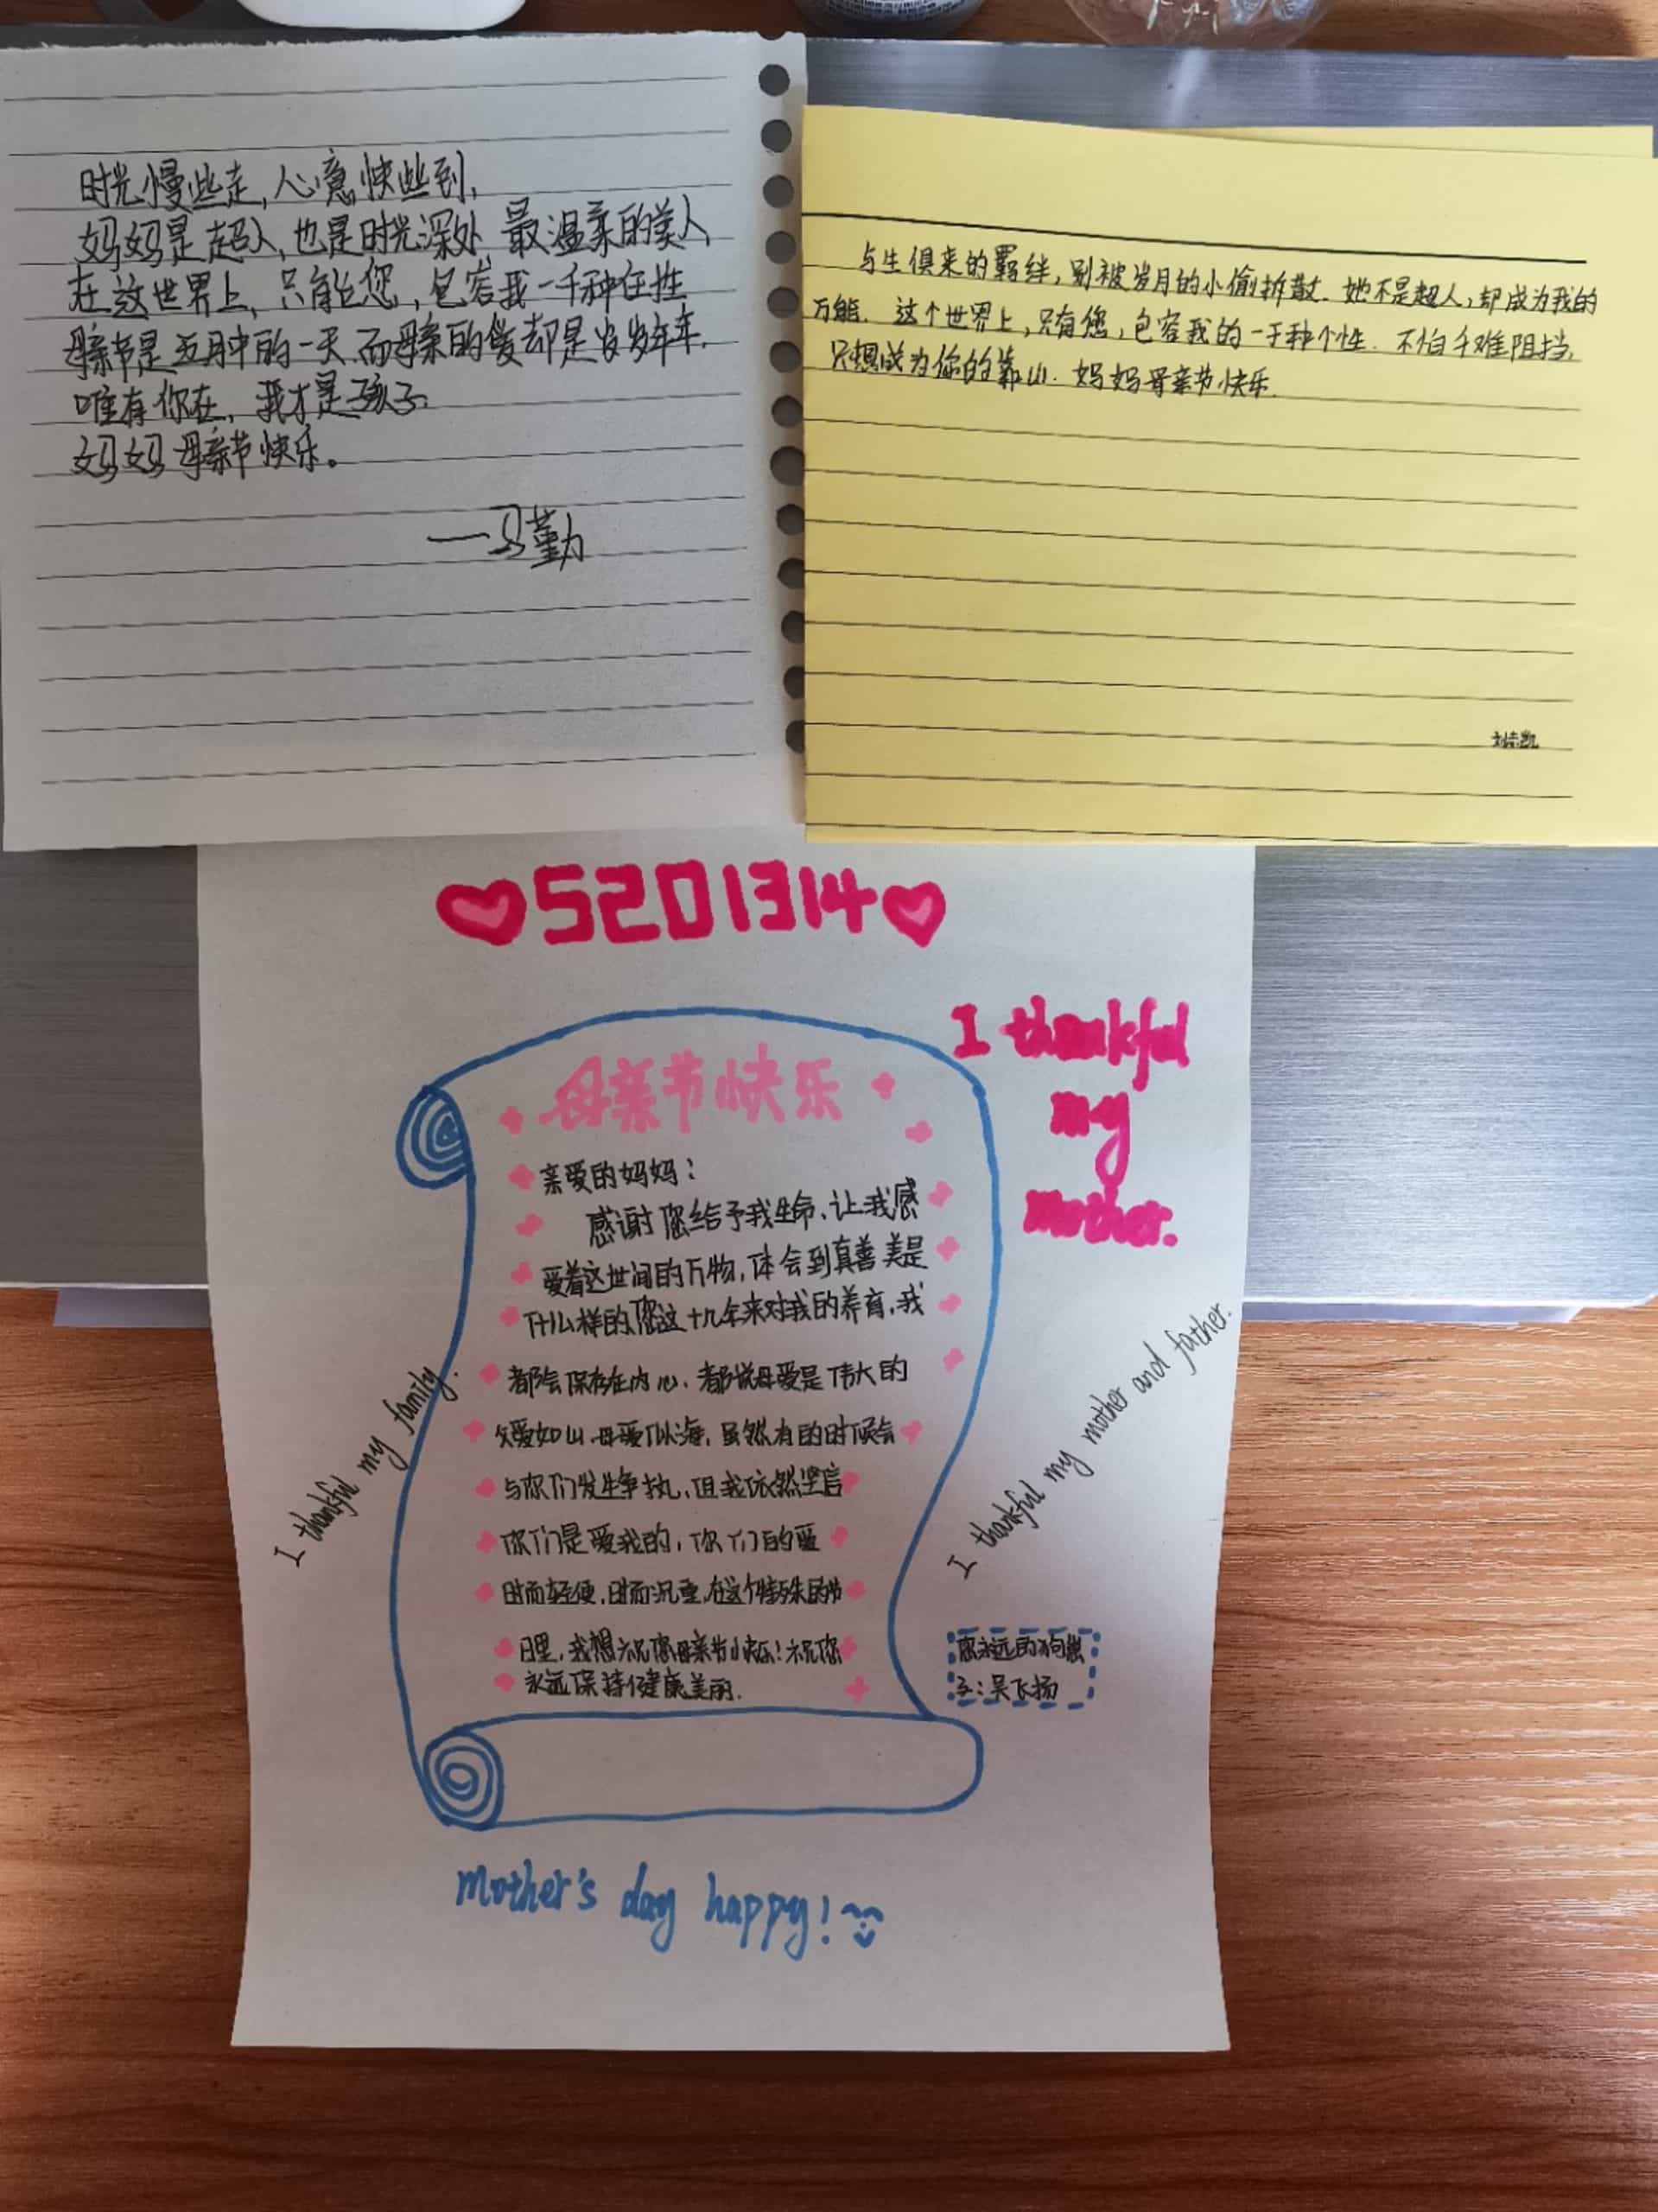 时光慢些走,心意快些到,
妈妈是超人,也是时光深处,最温柔的美人,
在这世界上,只能您,包容我一千种任性
母亲节是五月中的一天,而母亲的爱却是岁岁年年,
唯有你在,我才是孩子.
妈妈母亲节快乐。
——马勤
与生俱来的羁绊,别被岁月的小偷拆散.她不是超人,却成为我的
万能.这个世界上,只有您,包容我的一千种个性.不怕千难阻挡,
只想成为你的靠山.妈妈母亲节快乐.
5201314
I thankful
my
mother.
母亲节快乐
亲爱的妈妈:
感谢您给予我生命,让我感
爱着这世间的万物,体会到真善美是
什么样的.您这十几年来对我的养育,我
都会保存在内心.都说母爱是伟大的
父爱如山.母爱似海,虽然有的时候会
与你们发生争执,但我依然坚信
你们是爱我的,你们的爱
时而轻便,时而沉重,在这个特殊的节
日里,我想祝您母亲节快乐!祝您
永远保持健康美丽.
I thankful my family.
I thankful my mother and father.
您永远的狗崽
子:吴飞扬
mother's day happy!